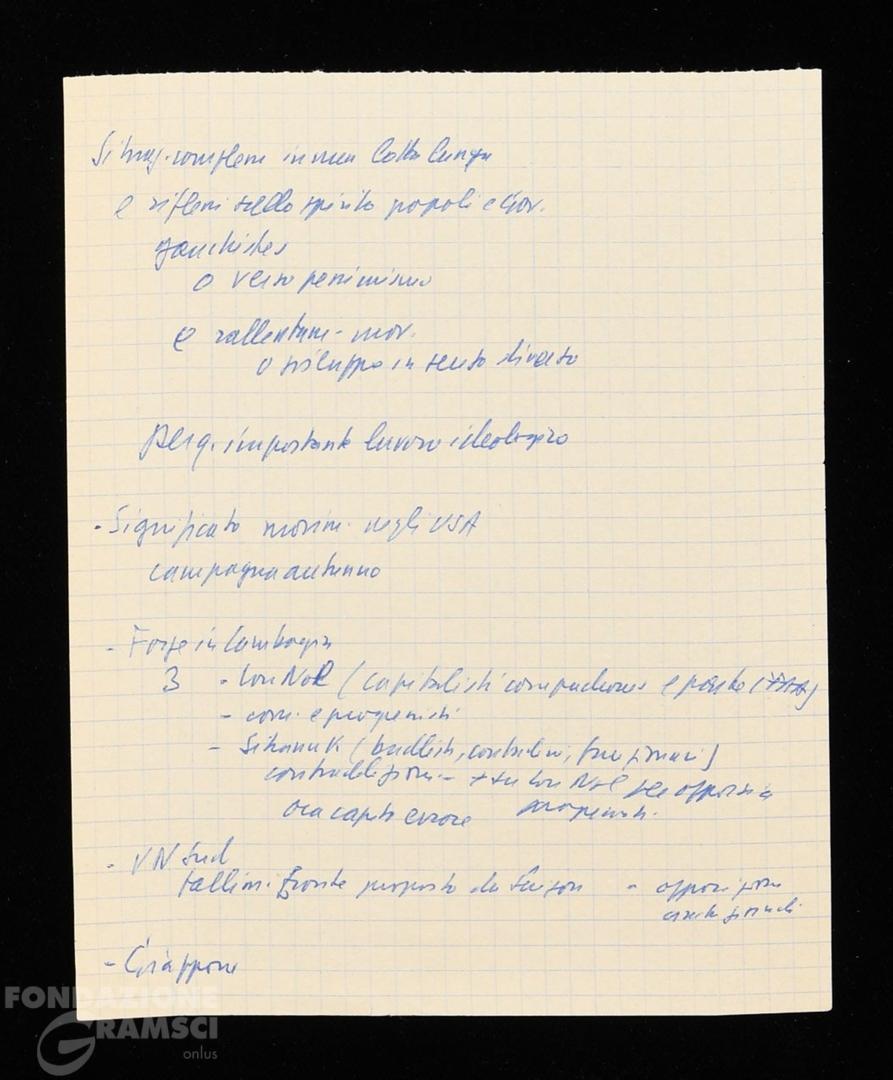 Situaz. complessa in una lotta lunga
e riflessi sullo spirito popoli e Gov.
gauchistes
o verso pessimismo
e rallentam. mov.
o sviluppo in senso diverso
Per q. importante lavoro ideologico
- Significato movim. negli USA
campagna autunno
- Forze in Cambogia
3 - Lon Nol (capitalisti compradores e parte
- com. e progressisti
- Sihanuk (buddisti, contadini, funzionari)
contraddizioni - Lon Nol
ora capito errore
- VN Sud
fallim. Fronte proposto da Saigon - opposizione
- Giappone
FONDAZIONE
GRAMSCI
onlus